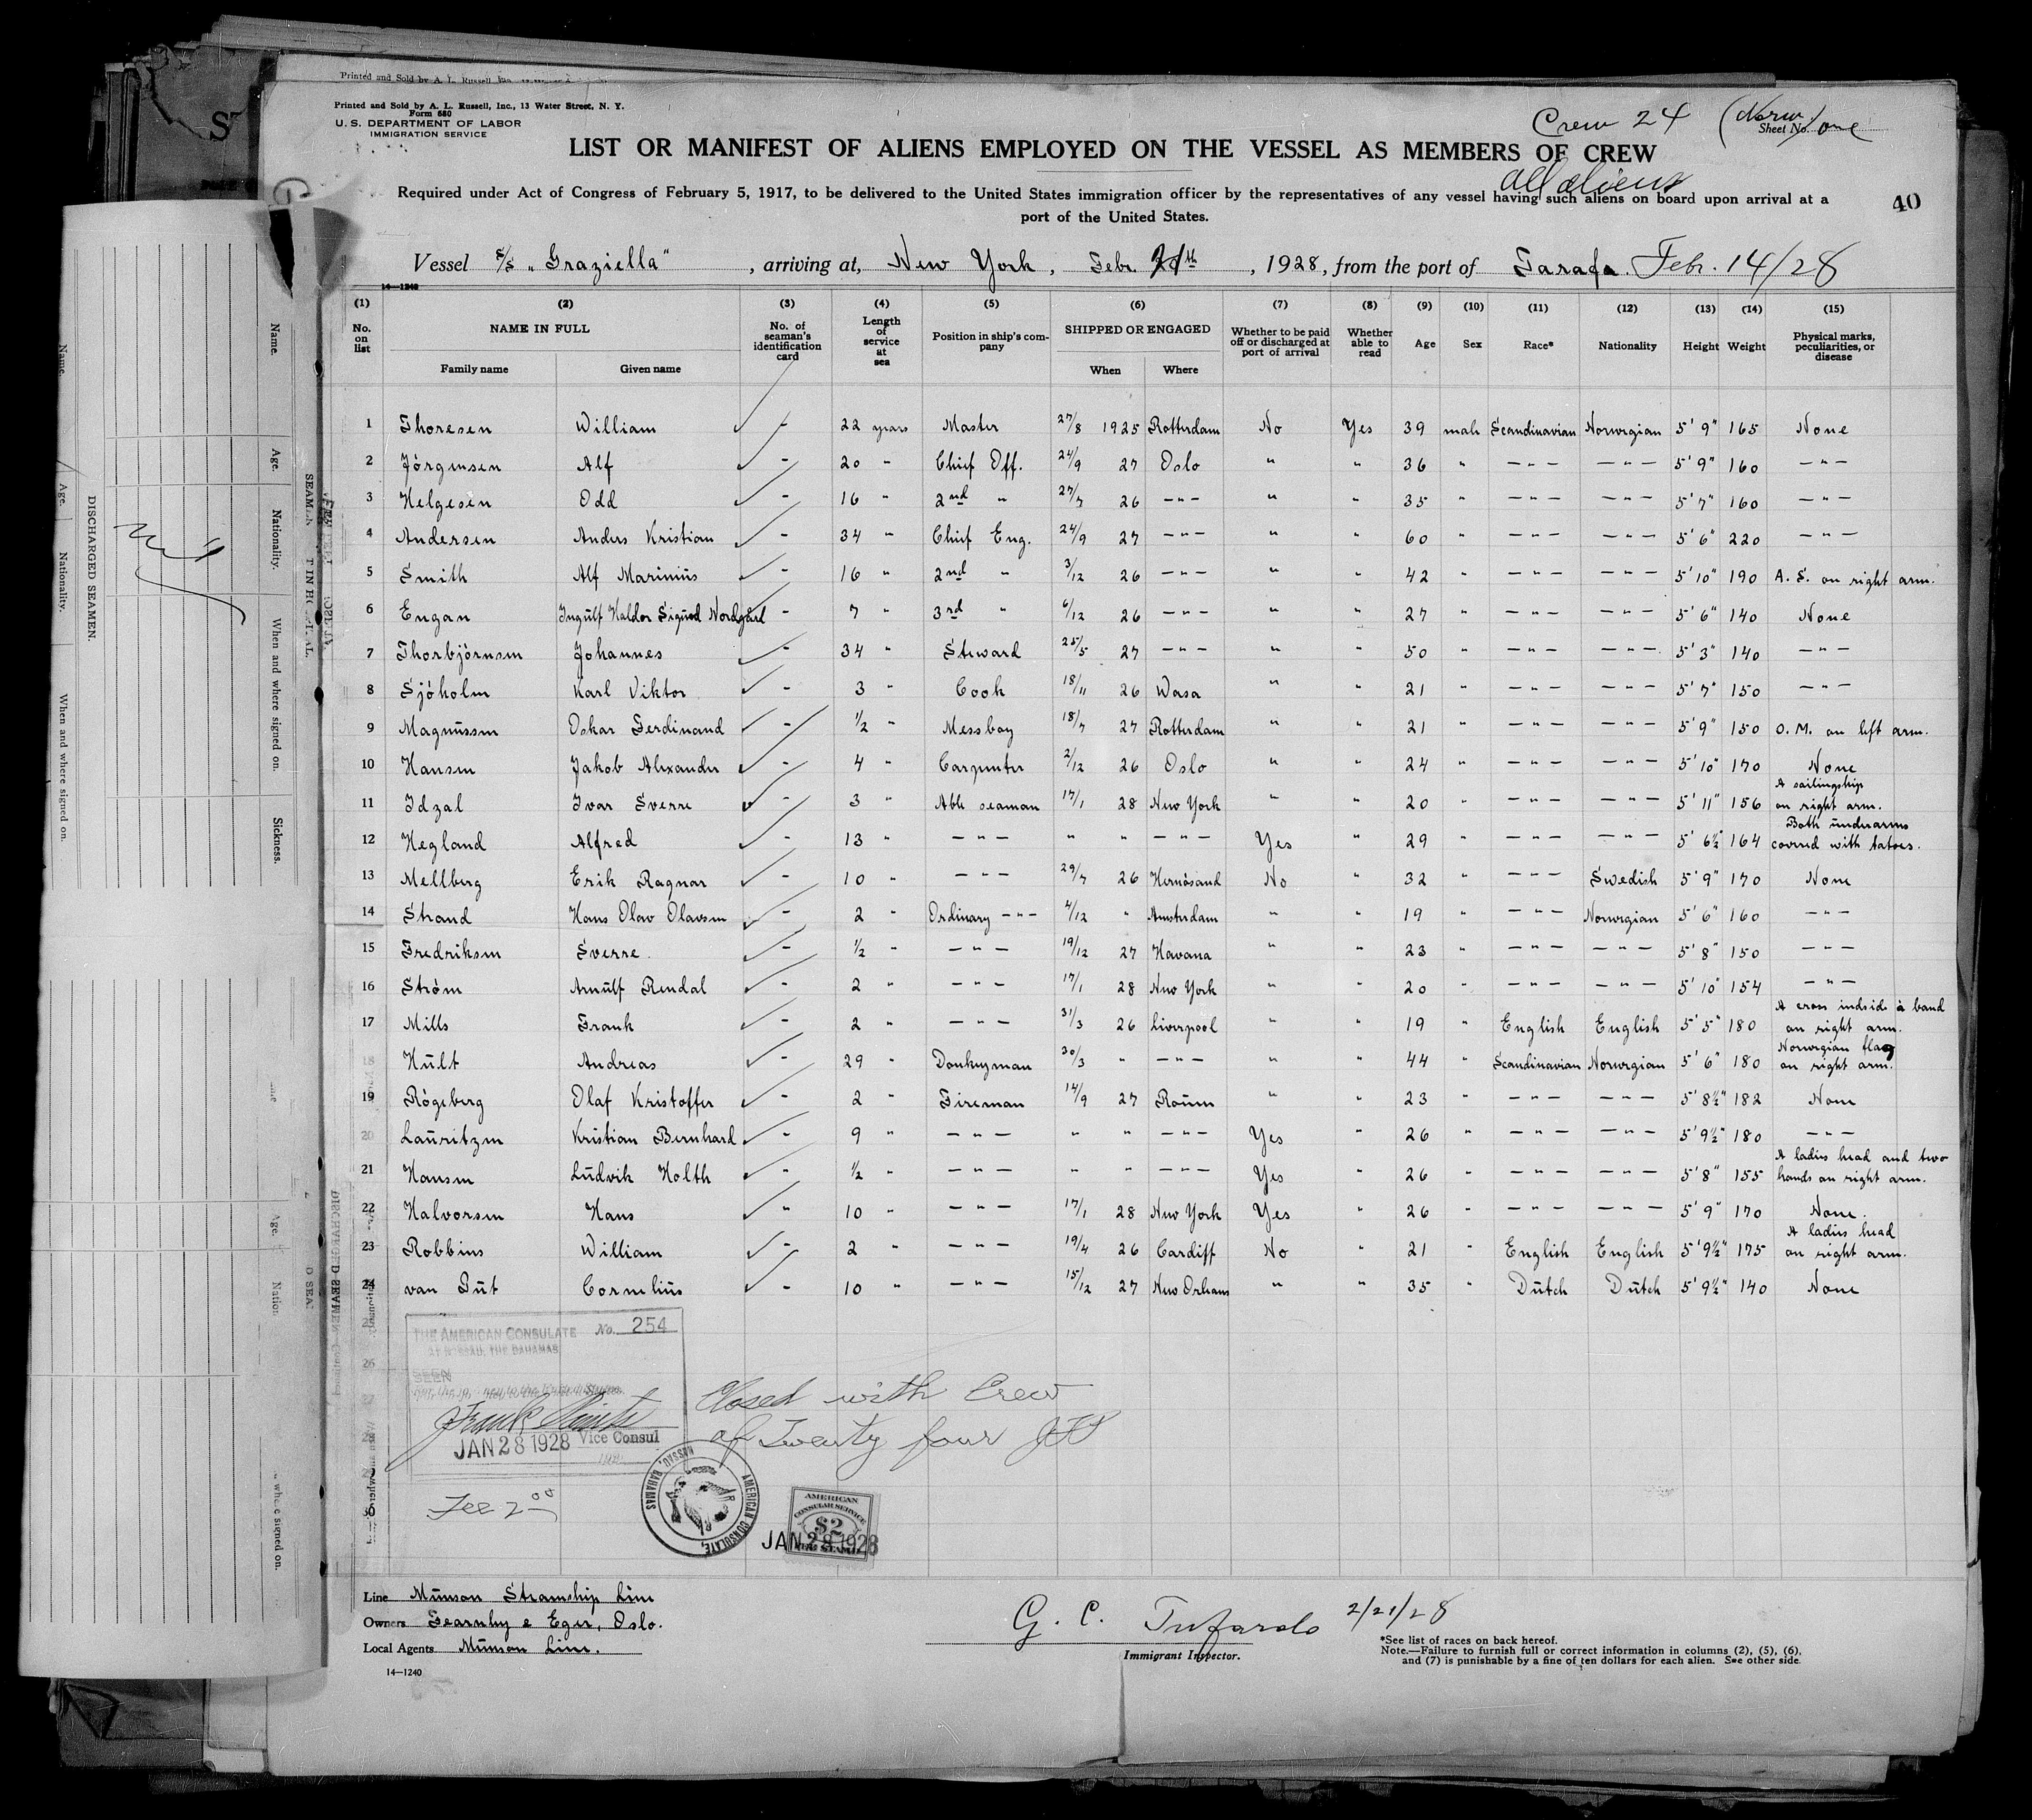 Printed and Sold by A. L. Russell, Inc., 13 Water Street, N. Y.
Form 680
U. S. DEPARTMENT OF LABOR
IMMIGRATION SERVICE
Crew 24 (Norw)
Sheet No. one
LIST OR MANIFEST OF ALIENS EMPLOYED ON THE VESSEL AS MEMBERS OF CREW
all aliens
Required under Act of Congress of February 5, 1917, to be delivered to the United States immigration officer by the representatives of any vessel having such aliens on board upon arrival at a
port of the United States.
40
Vessel S/S "Graziella", arriving at, New York, Febr. 21th, 1928, from the port of Tarafa. Febr. 14/28
14—1240
(1) (2) (3) (4) (5) (6) (7) (8) (9) (10) (11) (12) (13) (14) (15)
No. on list NAME IN FULL Family name Given name No. of seaman's identification card Length of service at sea Position in ship's company SHIPPED OR ENGAGED When Where Whether to be paid off or discharged at port of arrival Whether able to read Age Sex Race* Nationality Height Weight Physical marks, peculiarities, or disease
1 Thoresen William - 22 years Master 27/8 1925 Rotterdam No Yes 39 male Scandinavian Norwegian 5' 9" 165 None
2 Jörgensen Alf - 20 " Chief Off. 24/9 27 Oslo " " 36 " — " — — " — 5' 9" 160 — " —
3 Helgesen Odd - 16 " 2nd " 27/7 26 — " — " " 35 " — " — — " — 5' 7" 160 — " —
4 Andersen Anders Kristian - 34 " Chief Eng. 24/9 27 — " — " " 60 " — " — — " — 5' 6" 220 — " —
5 Smith Alf Marinius - 16 " 2nd " 3/12 26 — " — " " 42 " — " — — " — 5' 10" 190 A. S. on right arm.
6 Engan Ingulf Haldor Sigurd Nordgård - 7 " 3rd " 6/12 26 — " — " " 27 " — " — — " — 5' 6" 140 None
7 Thorbjörnsen Johannes - 34 " Steward 25/5 27 — " — " " 50 " — " — — " — 5' 3" 140 — " —
8 Sjöholm Karl Viktor - 3 " Cook 18/11 26 Wasa " " 21 " — " — — " — 5' 7" 150 — " —
9 Magnussen Oskar Ferdinand - 1/2 " Messboy 18/7 27 Rotterdam " " 21 " — " — — " — 5' 9" 150 O. M. on left arm.
10 Hansen Jakob Alexander - 4 " Carpenter 2/12 26 Oslo " " 24 " — " — — " — 5' 10" 170 None
11 Idzal Ivar Sverre - 3 " Able seaman 17/1 28 New York " " 20 " — " — — " — 5' 11" 156 A sailingship on right arm.
12 Hegland Alfred - 13 " — " — " " — " — Yes " 29 " — " — — " — 5' 6½" 164 Both underarms covered with tatoes.
13 Mellberg Erik Ragnar - 10 " — " — 29/7 26 Hernösand No " 32 " — " — Swedish 5' 9" 170 None
14 Strand Hans Olav Olavsen - 2 " Ordinary — " — 4/12 " Amsterdam " " 19 " — " — Norwegian 5' 6" 160 — " —
15 Fredriksen Sverre. - 1/2 " — " — 19/12 27 Havana " " 23 " — " — — " — 5' 8" 150 — " —
16 Ström Arnulf Rendal - 2 " — " — 17/1 28 New York " " 20 " — " — — " — 5' 10" 154 — " —
17 Mills Frank - 2 " — " — 31/3 26 Liverpool " " 19 " English English 5' 5" 180 A cross indside a band on right arm.
18 Hult Andreas - 29 " Donkeyman 30/3 " — " — " " 44 " Scandinavian Norwegian 5' 6" 180 Norwegian flag on right arm.
19 Rögeberg Olaf Kristoffer - 2 " Fireman 14/9 27 Rouen " " 23 " — " — — " — 5' 8½" 182 None
20 Lauritzen Kristian Bernhard - 9 " — " — " " — " — Yes " 26 " — " — — " — 5' 9½" 180 — " —
21 Hansen Ludvik Holth - 1/2 " — " — " " — " — Yes " 26 " — " — — " — 5' 8" 155 A ladies head and two hands on right arm.
22 Halvorsen Hans " 10 " — " — 17/1 28 New York Yes " 26 " — " — — " — 5' 9" 170 None.
23 Robbins William - 2 " — " — 19/4 26 Cardiff No " 21 " English English 5' 9½" 175 A ladies head on right arm.
24 van Gut Cornelius - 10 " — " — 15/12 27 New Orleans " " 35 " Dutch Dutch 5' 9½" 140 None
THE AMERICAN CONSULATE No. 254
AT NASSAU, THE BAHAMAS
SEEN
JAN 28 1928 Vice Consul
Closed with Crew
of Twenty four
Fee 2 00
AMERICAN CONSULATE, NASSAU, BAHAMAS
AMERICAN
CONSULAR SERVICE
$2
FEE STAMP
JAN 28 1928
Line Munson Steamship Line
Owners Fearnley & Eger, Oslo.
Local Agents Munson Line.
14—1240
G. C. Tufarolo 2/21/28
Immigrant Inspector.
*See list of races on back hereof.
Note.—Failure to furnish full or correct information in columns (2), (5), (6),
and (7) is punishable by a fine of ten dollars for each alien. See other side.
Name.
Age.
Nationality.
When and where signed on.
Sickness.
DISCHARGED SEAMEN.
Name.
Age.
Nationality.
When and where signed on.